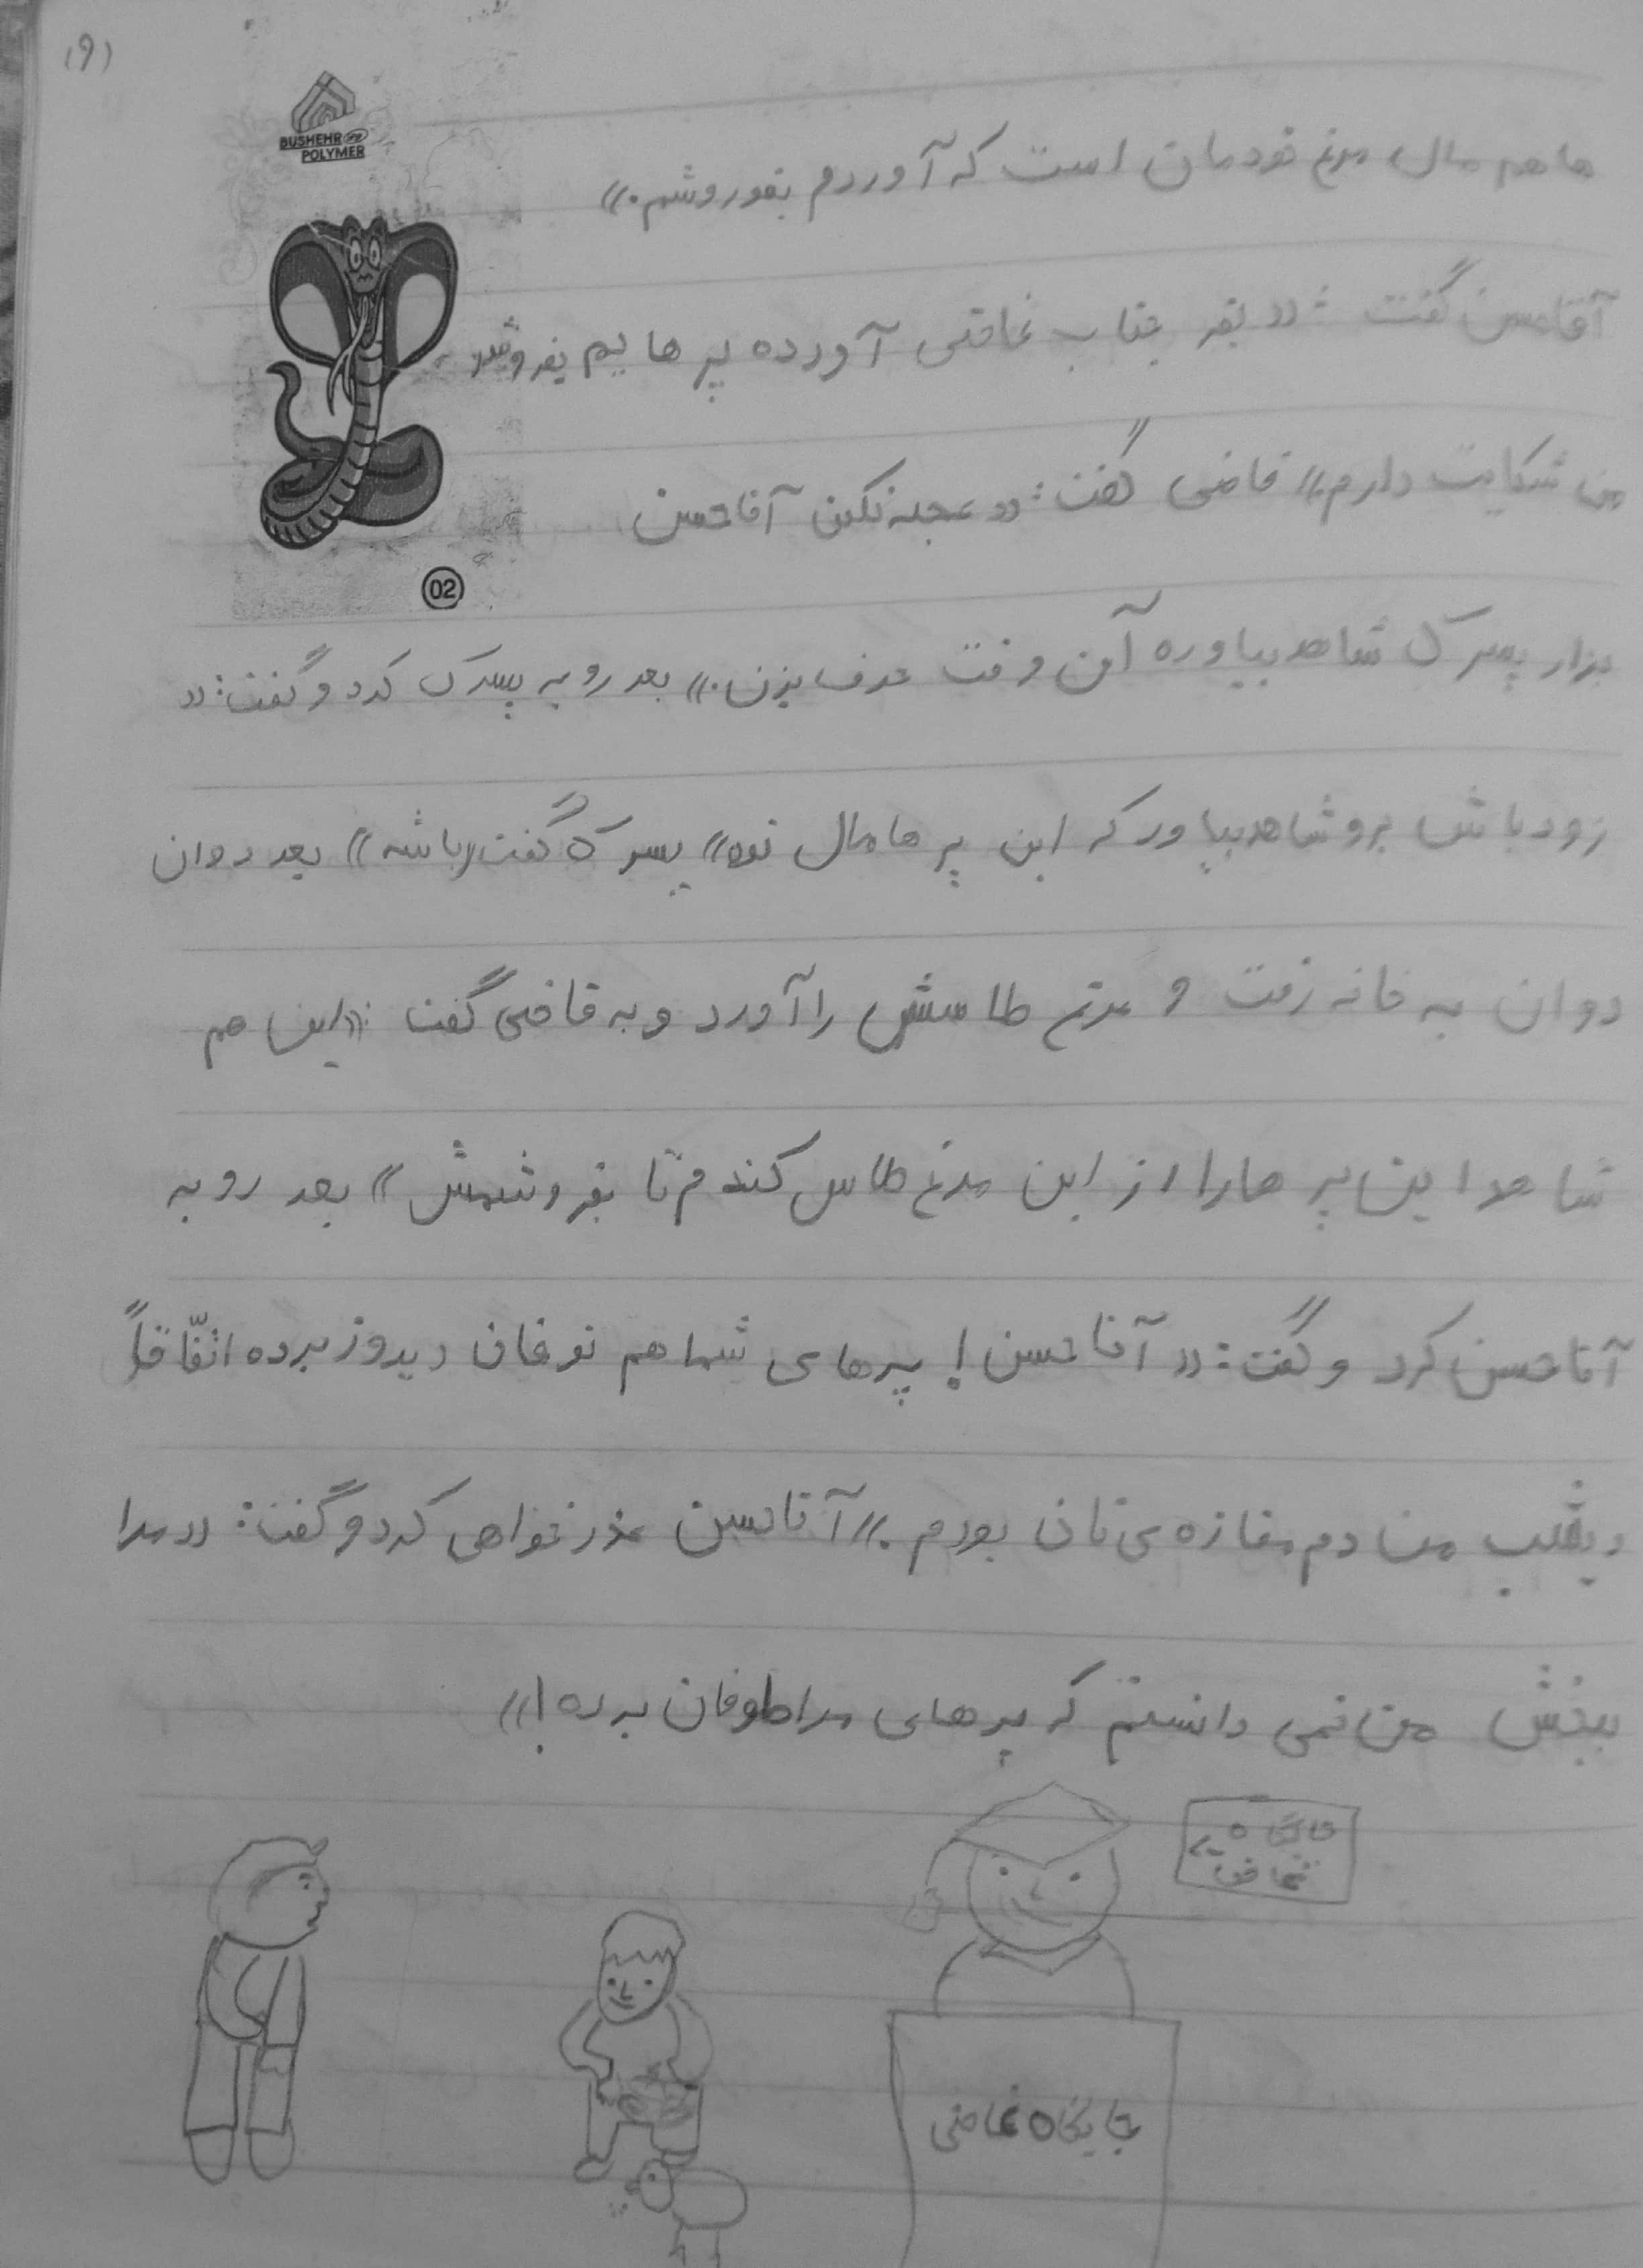 (۹)
BUSHEHR
POLYMER
ها هم مال مرغ خودمان است که آوردم بفوروشم.»
آقاحسن گفت: «نخیر جناب قاضی آورده پرهایم بفروشد.
02
من شکایت دارم» قاضی گفت: «عجله نکن آقاحسن
بزار پسرک شاهد بیاوره آن وقت حرف بزن.» بعد رو به پسرک کرد و گفت: «
زود باش برو شاهد بیاور که این پرها مال توه» پسرک گفت «باشه» بعد دوان
دوان به خانه رفت و مرغ طاسش را آورد و به قاضی گفت: «این هم
شاهد این پرها را از این مرغ طاس کندم تا بفروشمش» بعد رو به
آقاحسن کرد و گفت: «آقاحسن! پرهای شما هم توفان دیروز برده اتّفاقاً
دیشب من دم مغازه‌ی تان بودم.» آقاحسن عذرخواهی کرد و گفت: «مرا
ببخش من نمی دانستم که پرهای مرا طوفان برده!»
جایگاه قاضی